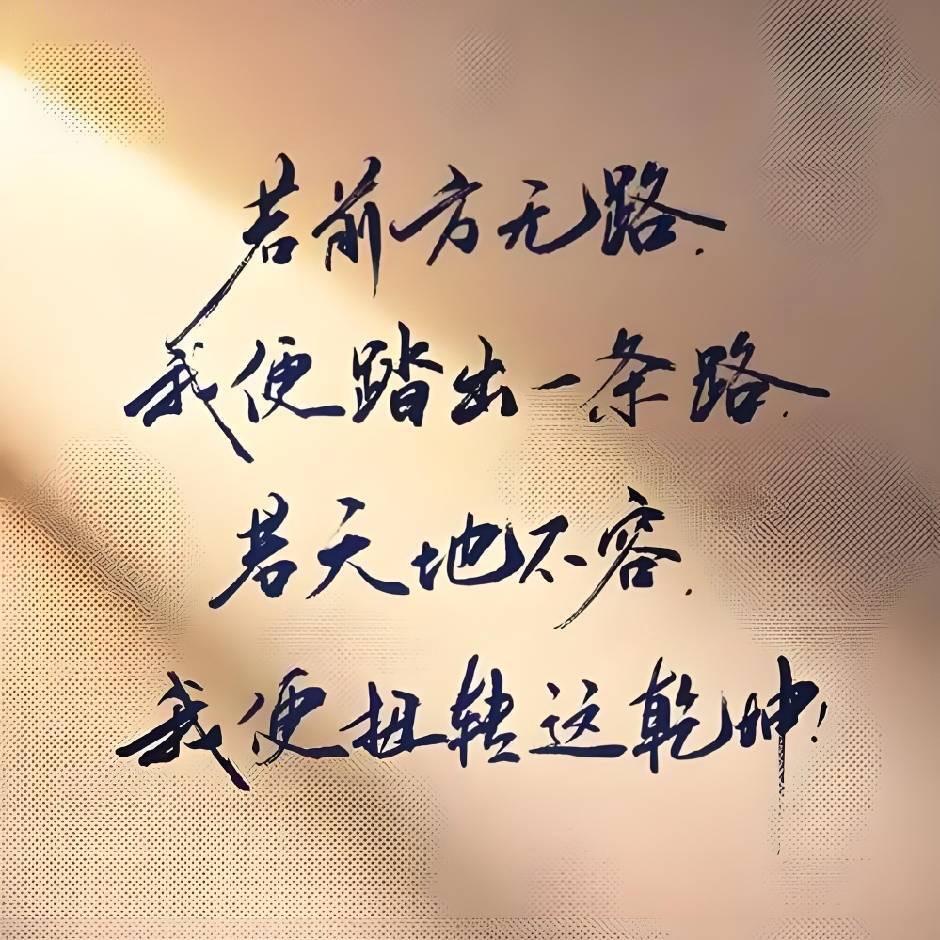 若前方无路.
我便踏出一条路.
若天地不容.
我便扭转这乾坤!